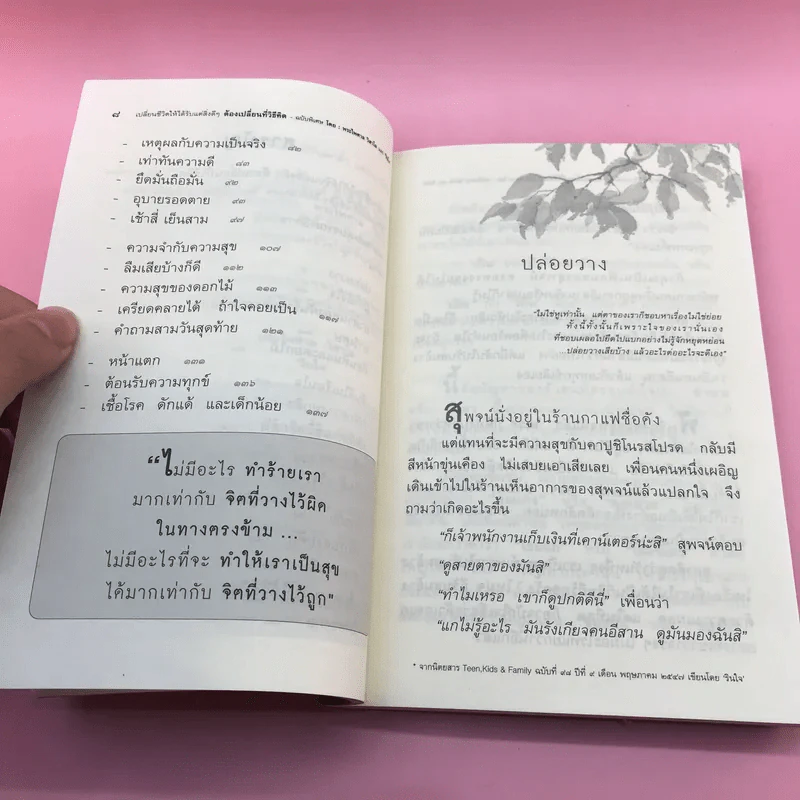 ๘ เปลี่ยนชีวิตให้ได้รับแต่สิ่งดีๆ ต้องเปลี่ยนที่วิธีคิด - ฉบับพิเศษ โดย : พระไพศาล
- เหตุผลกับความเป็นจริง ๘๒
- เท่าทันความดี ๘๓
- ยึดมั่นถือมั่น ๙๒
- อุบายรอดตาย ๙๓
- เช้าสี่ เย็นสาม ๙๗
- ความจำกับความสุข ๑๐๗
- ลืมเสียบ้างก็ดี ๑๑๒
- ความสุขของดอกไม้ ๑๑๓
- เครียดคลายได้ ถ้าใจคอยเป็น ๑๑๗
- คำถามสามวันสุดท้าย ๑๒๑
- หน้าแตก ๑๓๑
- ต้อนรับความทุกข์ ๑๓๖
- เชื้อโรค ดักแด้ และเด็กน้อย ๑๓๗
“ไม่มีอะไร ทำร้ายเรา
มากเท่ากับ จิตที่วางไว้ผิด
ในทางตรงข้าม ...
ไม่มีอะไรที่จะ ทำให้เราเป็นสุข
ได้มากเท่ากับ จิตที่วางไว้ถูก"
ปล่อยวาง
"ไม่ใช่หูเท่านั้น แต่ตาของเราก็ชอบหาเรื่องไม่ใช่ย่อย
ทั้งนี้ทั้งนั้นก็เพราะใจของเรานั่นเอง
ที่ชอบเผลอไปยึดไปแบกอย่างไม่รู้จักหยุดหย่อน
...ปล่อยวางเสียบ้าง แล้วอะไรต่ออะไรจะดีเอง"
สุพจน์นั่งอยู่ในร้านกาแฟชื่อดัง
แต่แทนที่จะมีความสุขกับคาปูชิโนรสโปรด กลับมี
สีหน้าขุ่นเคือง ไม่เสบยเอาเสียเลย เพื่อนคนหนึ่งเผอิญ
เดินเข้าไปในร้านเห็นอาการของสุพจน์แล้วแปลกใจ จึง
ถามว่าเกิดอะไรขึ้น
“ก็เจ้าพนักงานเก็บเงินที่เคาน์เตอร์น่ะสิ” สุพจน์ตอบ
“ดูสายตาของมันสิ”
“ทำไมเหรอ เขาก็ดูปกติดีนี่” เพื่อนว่า
“แกไม่รู้อะไร มันรังเกียจคนอีสาน ดูมันมองฉันสิ”
* จากนิตยสาร Teen,Kids & Family ฉบับที่ ๙๘ ปีที่ ๙ เดือน พฤษภาคม ๒๕๔๗ เขียนโดย 'รินใจ'